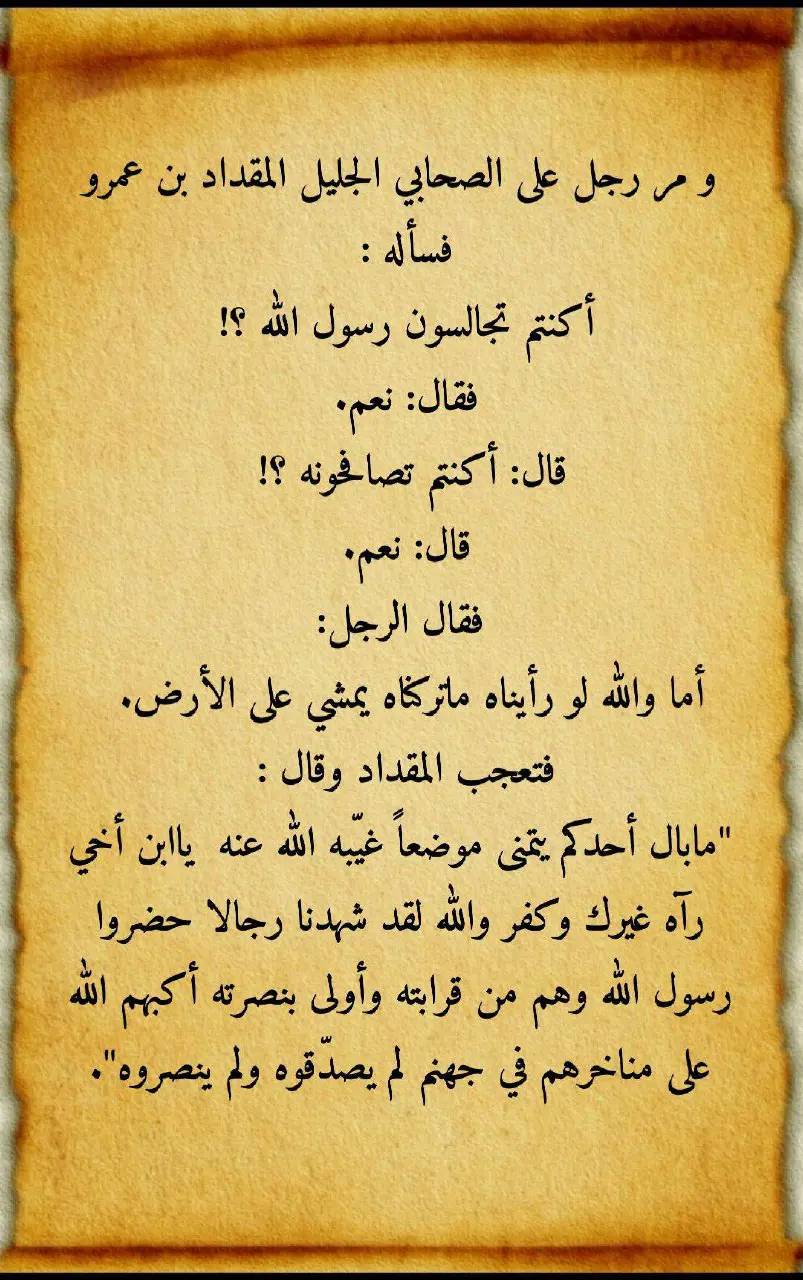 و مر رجل على الصحابي الجليل المقداد بن عمرو
فسأله :
أكنتم تجالسون رسول الله ؟!
فقال: نعم.
قال: أكنتم تصافحونه ؟!
قال: نعم.
فقال الرجل:
أما والله لو رأيناه ماتركناه يمشي على الأرض.
فتعجب المقداد وقال :
"مابال أحدكم يتمنى موضعاً غيّبه الله عنه ياابن أخي
رآه غيرك وكفر والله لقد شهدنا رجالا حضروا
رسول الله وهم من قرابته وأولى بنصرته أكبهم الله
على مناخرهم في جهنم لم يصدّقوه ولم ينصروه".